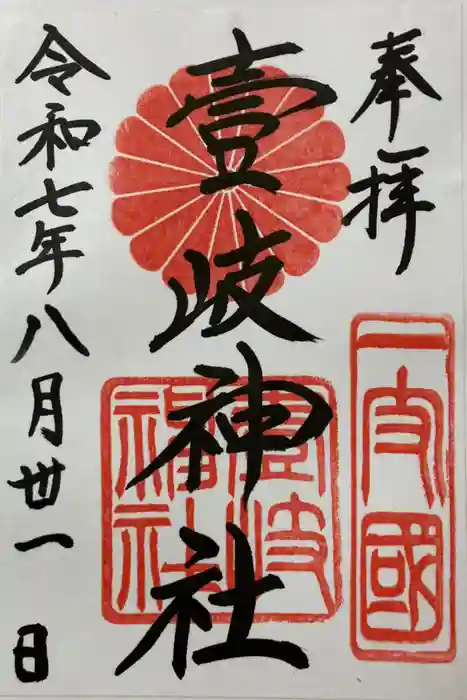 奉拝
一支國
壹岐神社
壹岐神社
令和七年八月卅一日